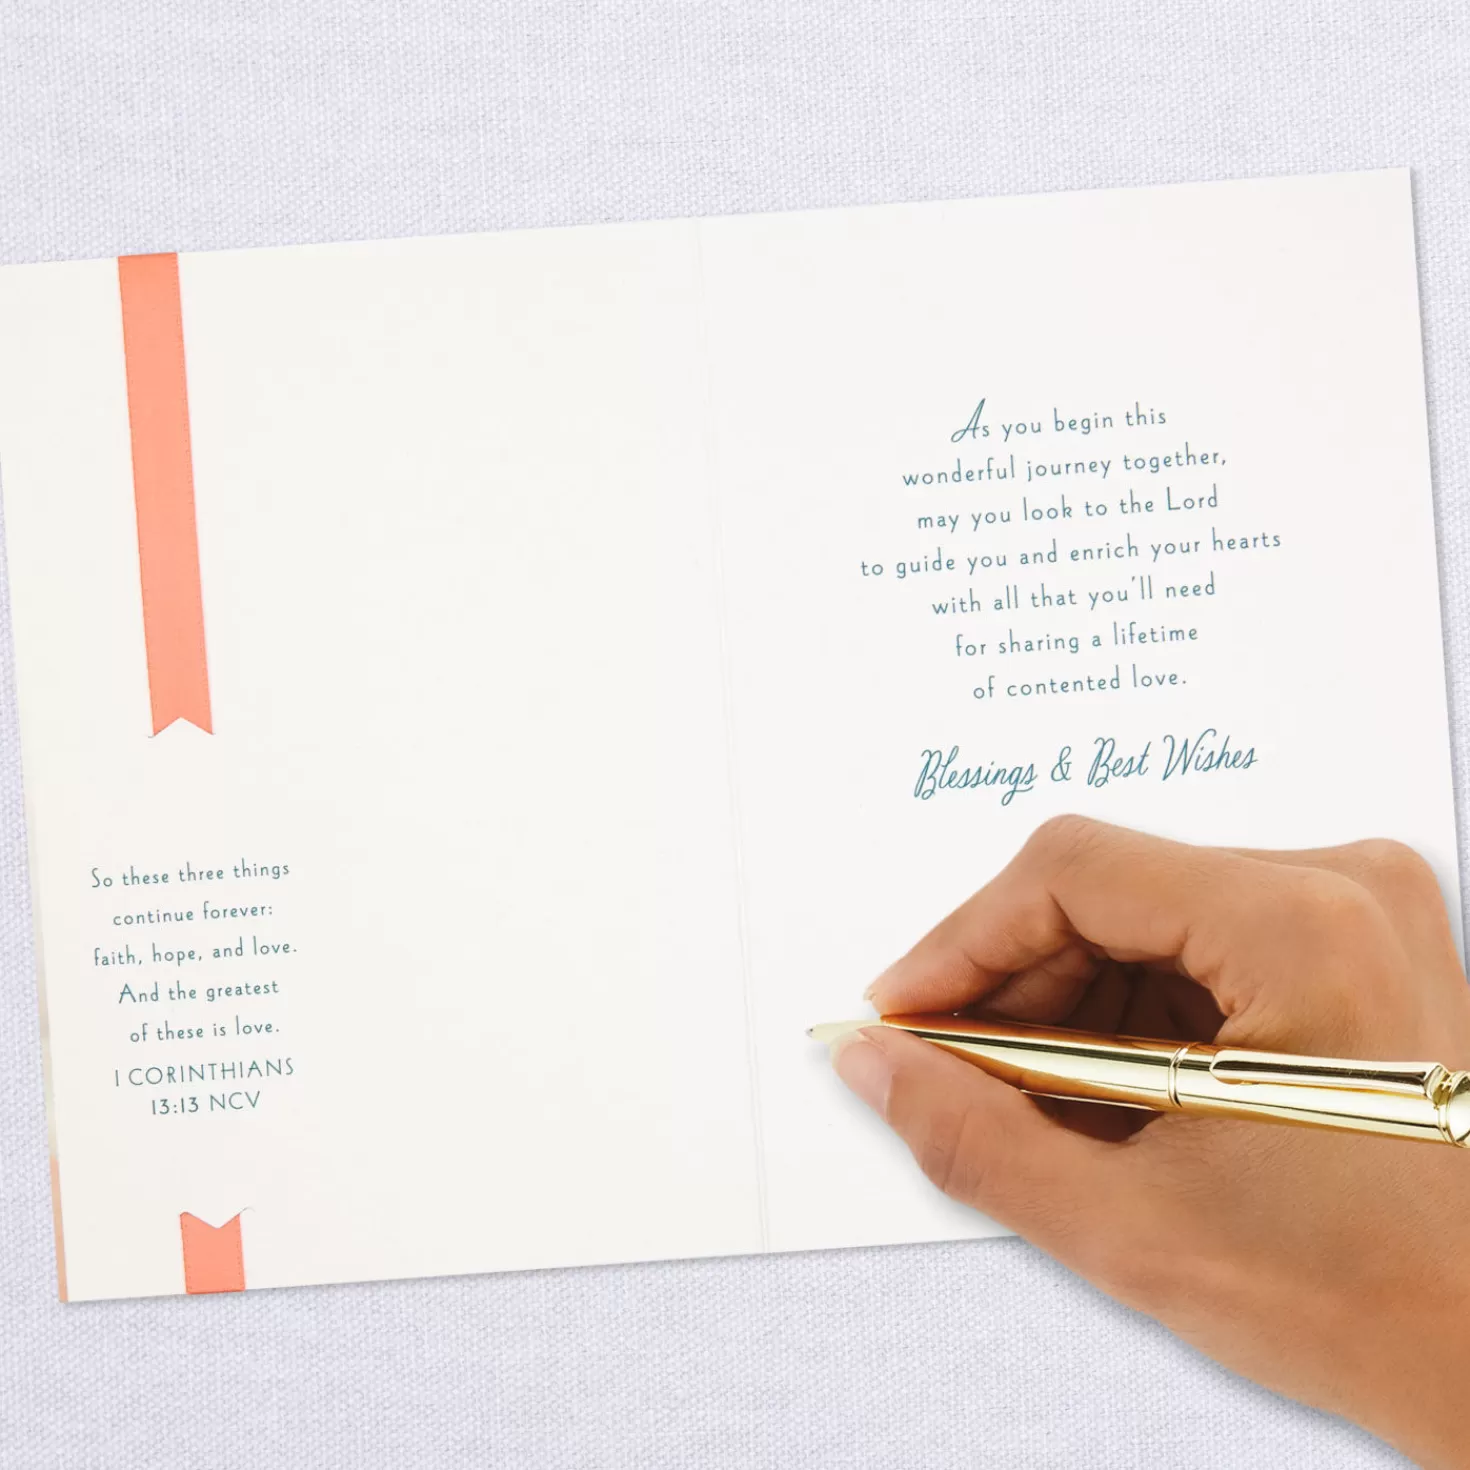 So these three things
continue forever:
faith, hope, and love.
And the greatest
of these is love.
I CORINTHIANS
13:13 NCV
As you begin this
wonderful journey together,
may you look to the Lord
to guide you and enrich your hearts
with all that you'll need
for sharing a lifetime
of contented love.
Blessings & Best Wishes